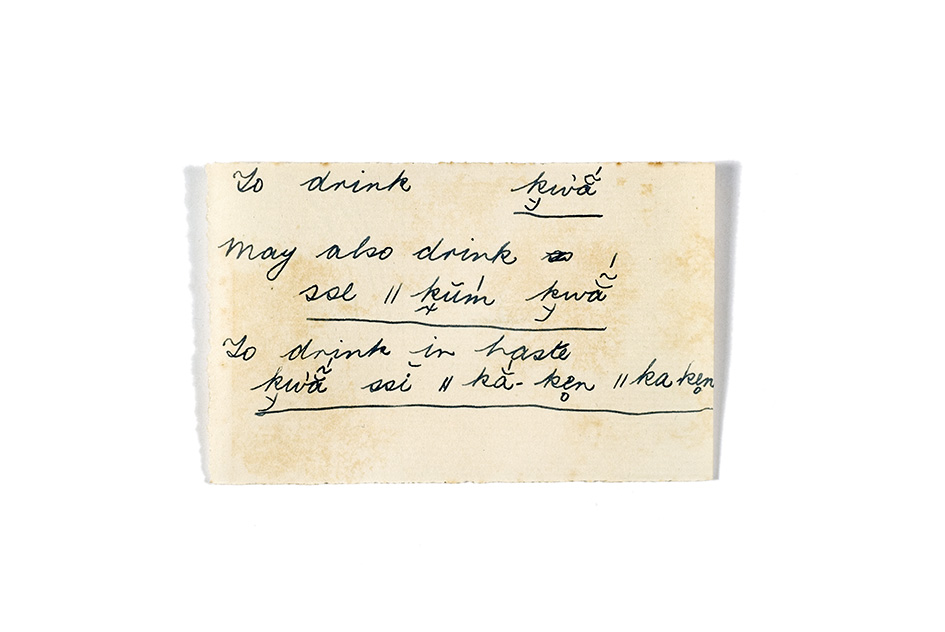 To drink k̮wã́
May also drink
sse ǁ k͓ŭḿ k̮wã́
To drink in haste
k̮wã́ ssĭ ǁ kắ-ke̥n ǁ ka-ke̥n